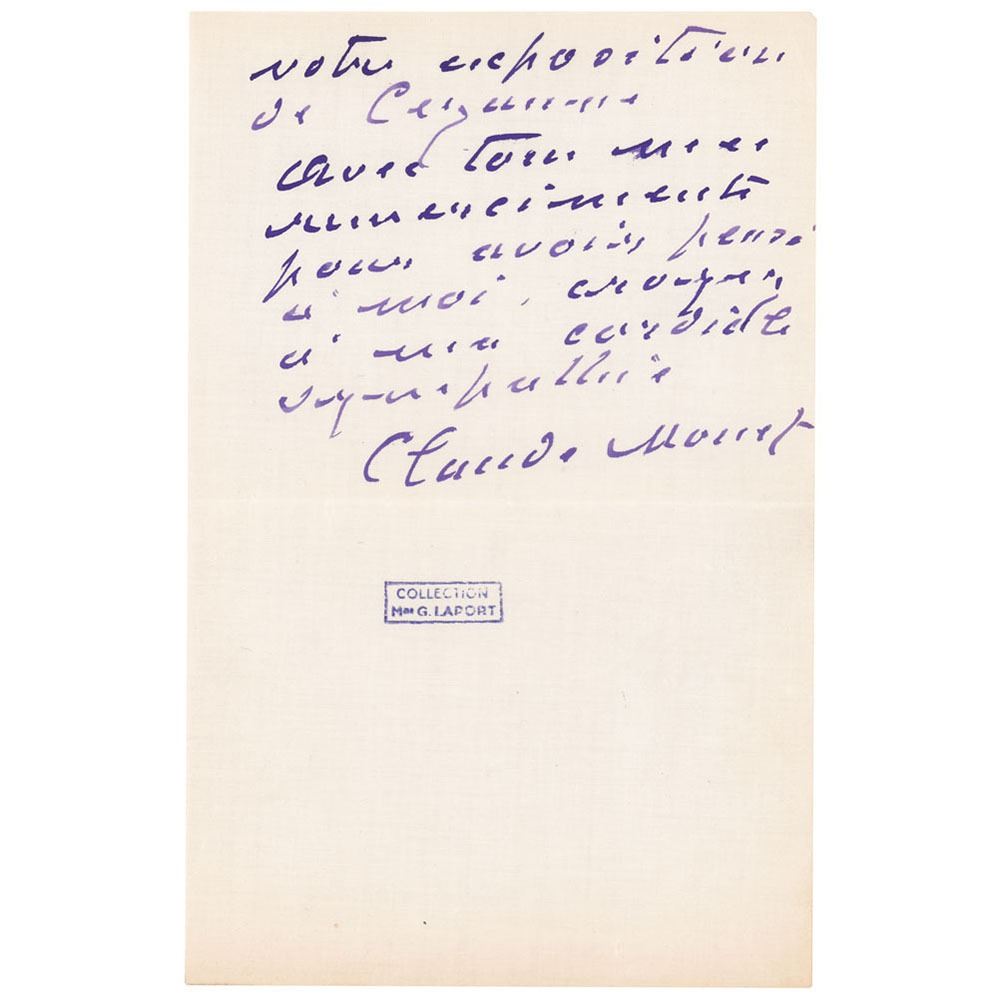 votre exposition
de Cezanne
Avec tous mes
remerciments
pour avoir pensé
à moi, croyez
à ma cordiale
sympathie
Claude Monet
COLLECTION
Mme G. LAPORT